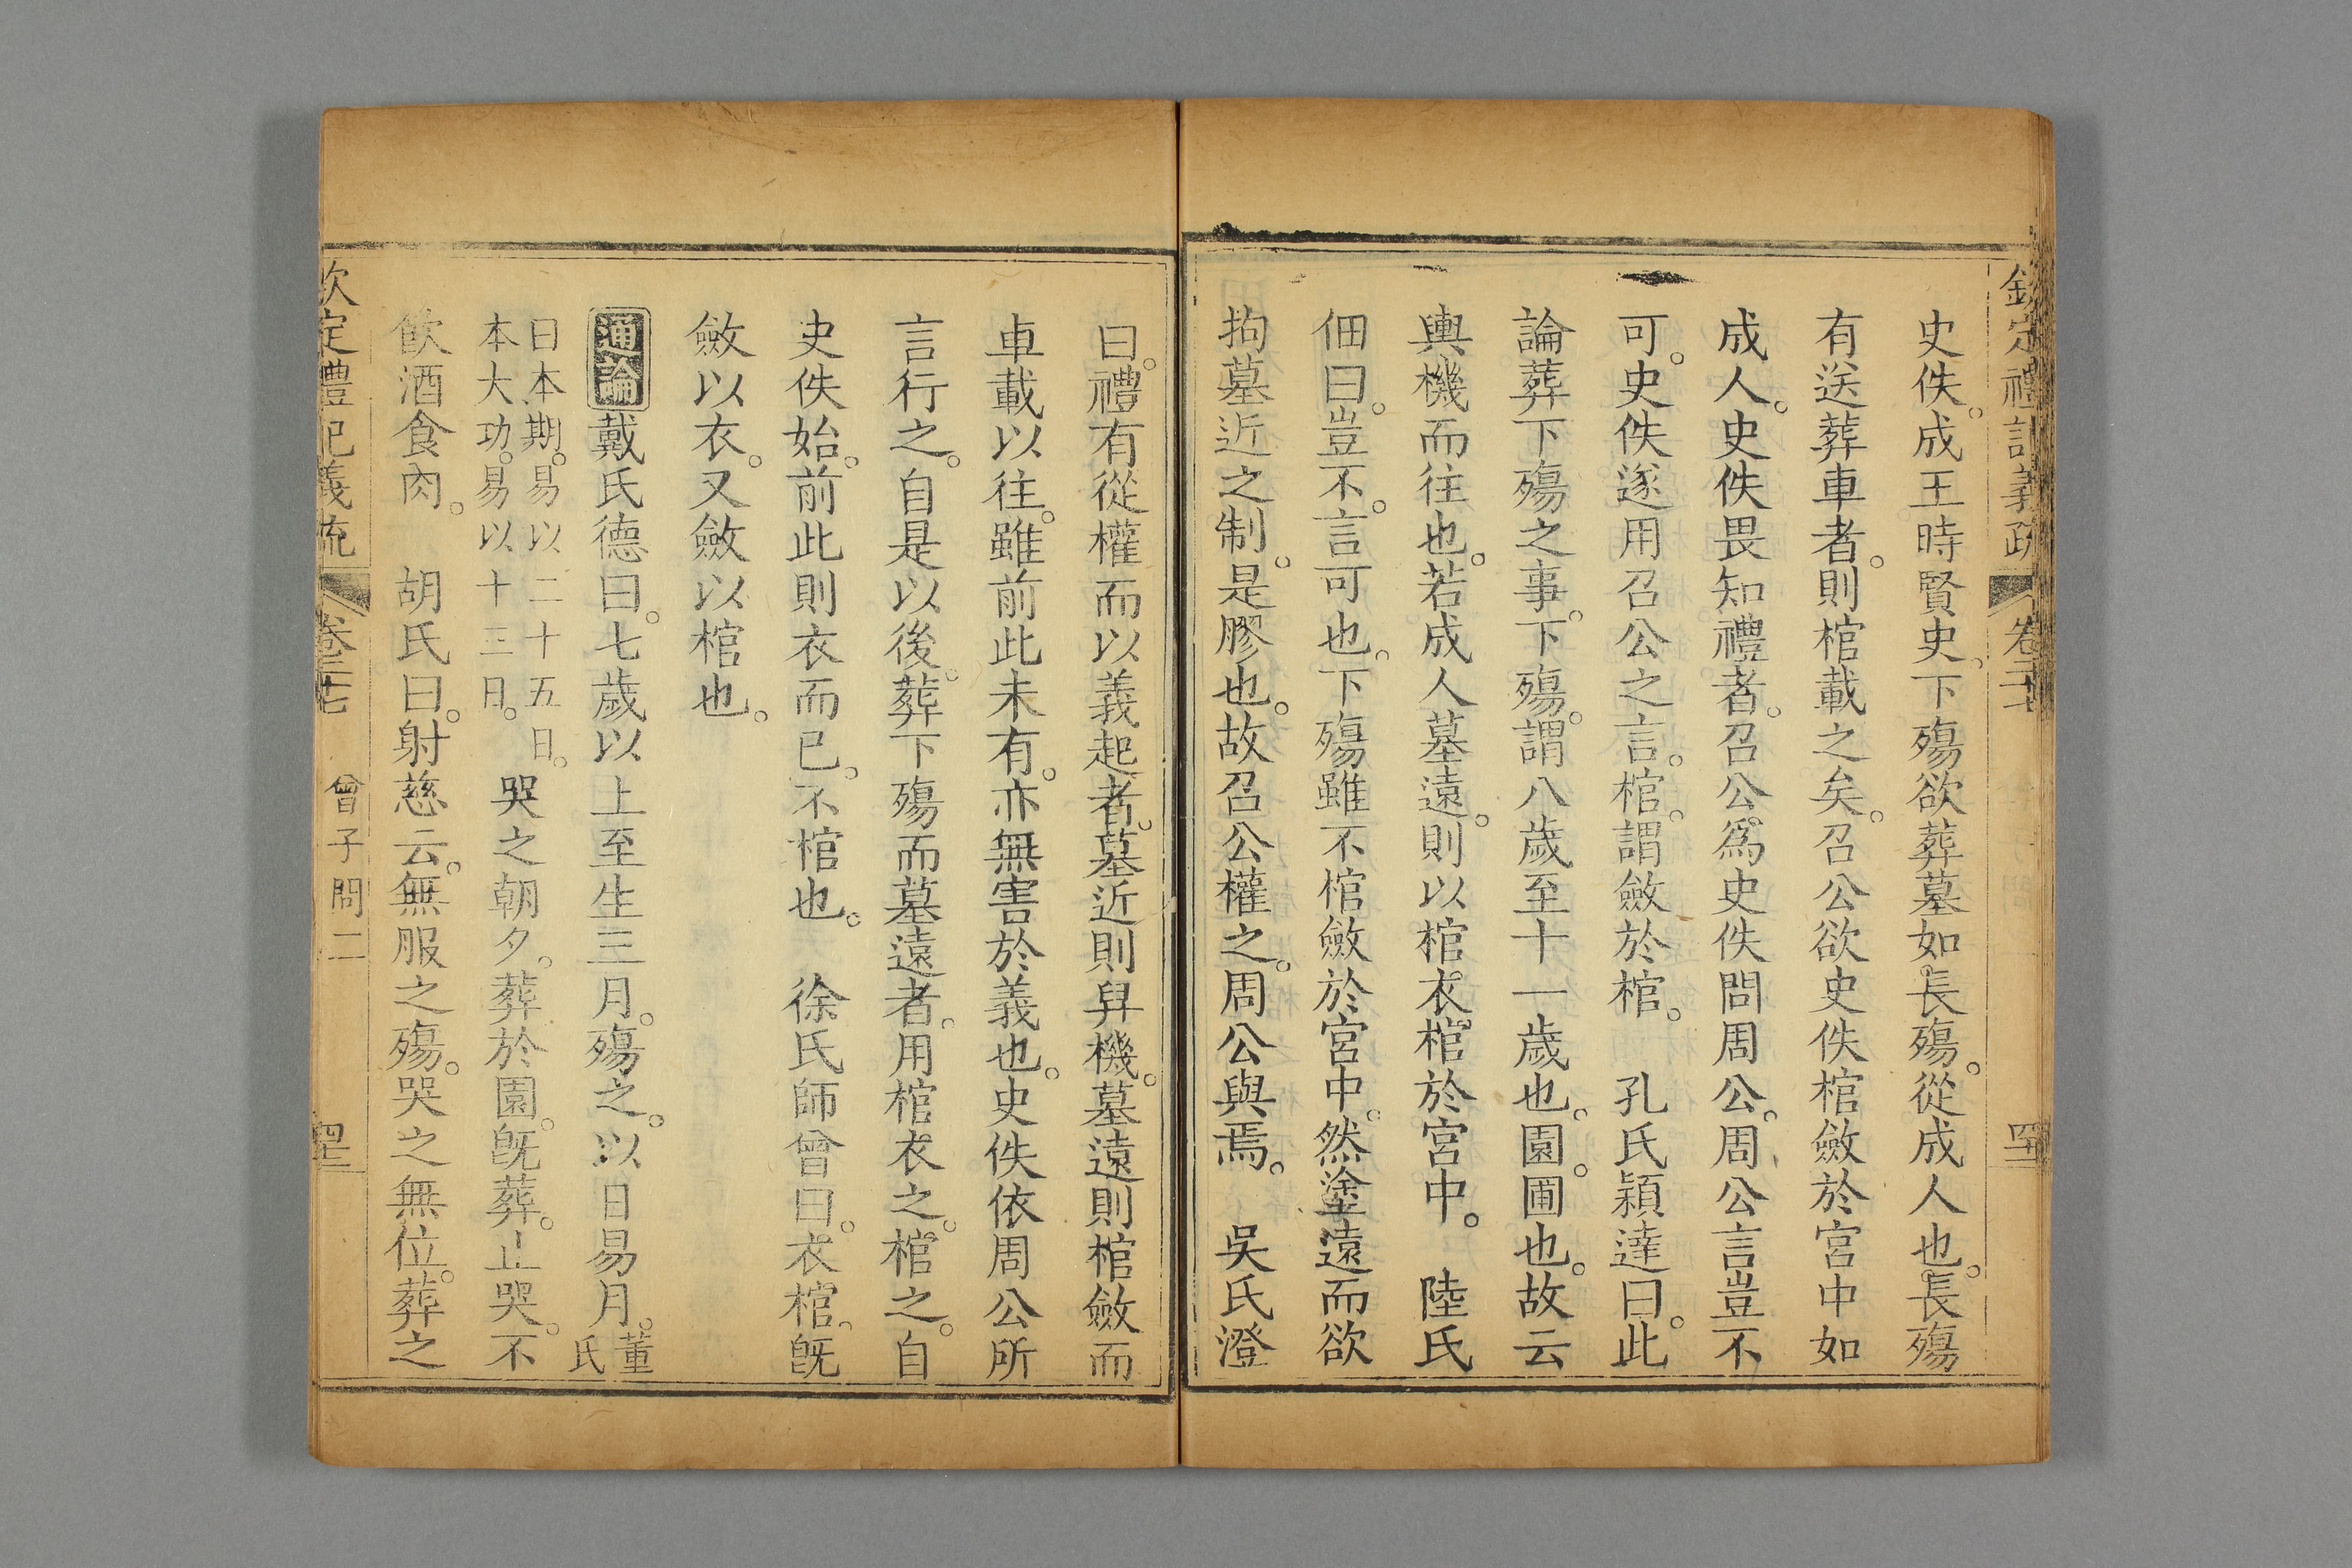 欽定禮記義疏 卷二十七 四十一
史佚。成王時賢史。下殤欲葬墓如長殤。從成人也。長殤
有送葬車者。則棺載之矣。召公欲史佚棺斂於宮中如
成人。史佚畏知禮者。召公爲史佚問周公。周公言豈不
可。史佚遂用召公之言。棺。謂斂於棺。　孔氏穎達曰。此
論葬下殤之事。下殤。謂八歲至十一歲也。園。圃也。故云
輿機而往也。若成人墓遠。則以棺衣。棺於宮中。　陸氏
佃曰。豈不。言可也。下殤雖不棺斂於宮中。然塗遠而欲
拘墓近之制。是膠也。故召公權之。周公與焉。　吳氏澄
曰。禮有從權而以義起者。墓近則舁機。墓遠則棺斂而
車載以往。雖前此未有。亦無害於義也。史佚依周公所
言行之。自是以後。葬下殤而墓遠者。用棺衣之。棺之。自
史佚始。前此則衣而已。不棺也。　徐氏師曾曰。衣棺。旣
斂以衣。又斂以棺也。
通論 戴氏德曰。七歲以上至生三月。殤之。以日易月。董氏
曰本期。易以二十五日。
本大功。易以十三日。哭之朝夕。葬於園。旣葬。止哭。不
飮酒食肉。　胡氏曰。射慈云。無服之殤。哭之無位。葬之
欽定禮記義疏 卷二十七 曾子問二 四十二